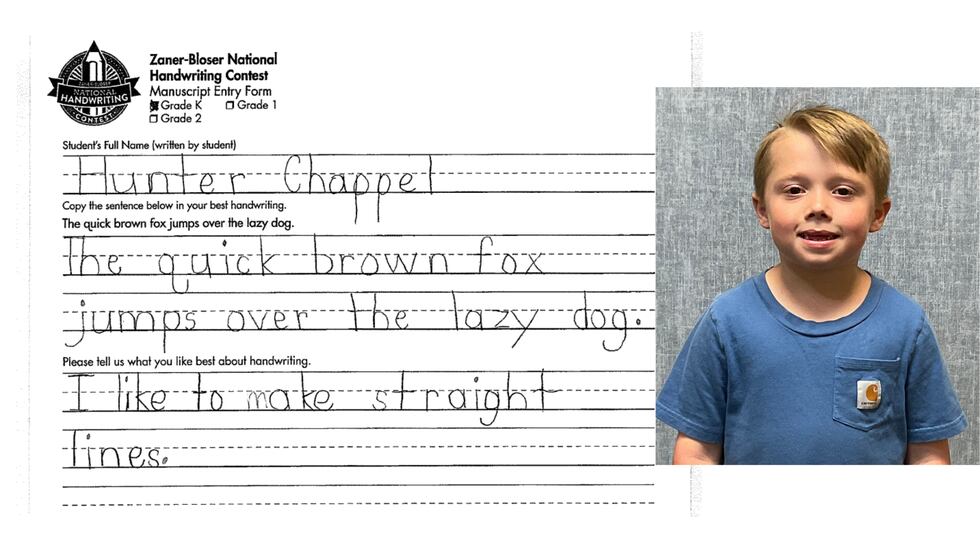 Zaner-Bloser National
Handwriting Contest
Manuscript Entry Form
Grade K Grade 1
Grade 2
NATIONAL
HANDWRITING
CONTEST
Student's Full Name (written by student)
Hunter Chappel
Copy the sentence below in your best handwriting.
The quick brown fox jumps over the lazy dog.
the quick brown fox
jumps over the lazy dog.
Please tell us what you like best about handwriting.
I like to make straight
lines.